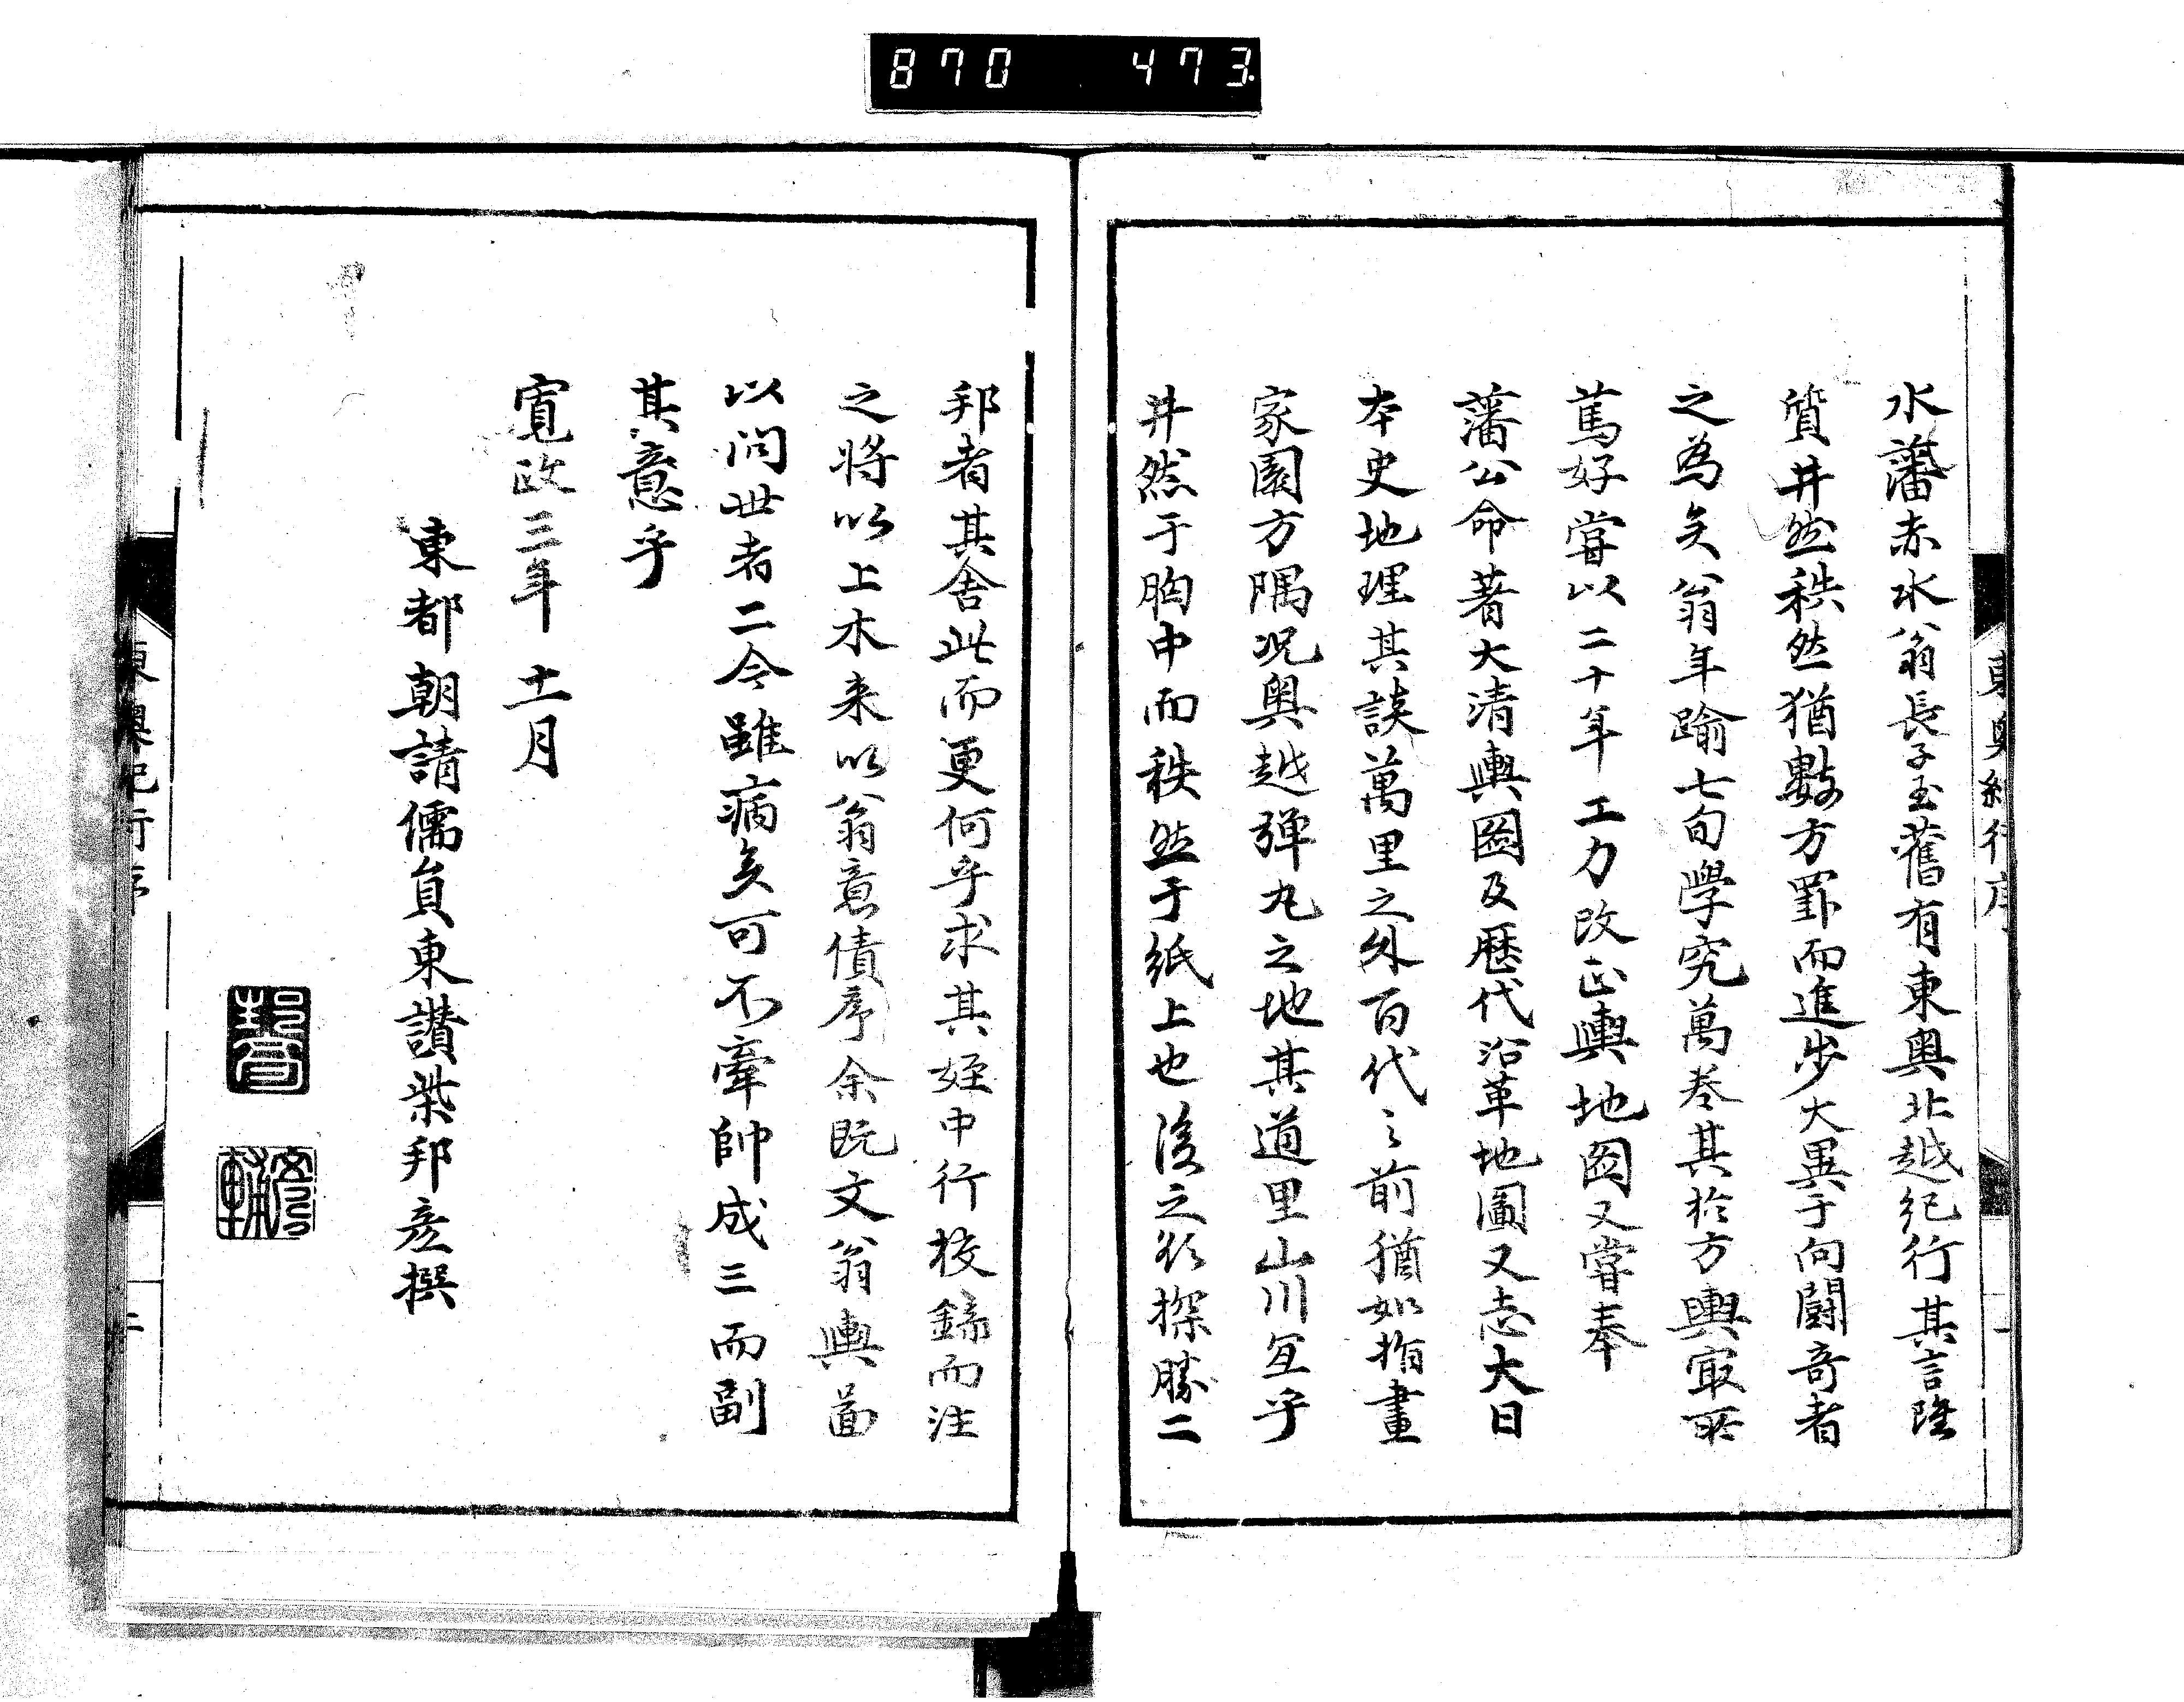 870 473
東奥紀行序
一
水藩赤水翁長子玉舊有東奥北越紀行其言隆
質井然秩然猶數方罫而進步大異于向闘奇者
之為矣翁年踰七旬學究萬卷其於方輿寂所
篤好嘗以二十年工力改正輿地圖又嘗奉
藩公命著大清輿圖及歷代沿革地圖又志大日
本史地理其談萬里之外百代之前猶如指畫
家園方隅況奥越弾丸之地其道里山川宜乎
井然于胸中而秩然于紙上也後之欲探勝二
邦者其舍此而更何乎求其姪中行挍録而注
之將以上木来以翁意債序余既文翁輿圖
以問世者二今雖病矣可不牽帥成三而副
其意乎
寛政三年十一月
東都朝請儒員東讃柴邦彦撰
邦彦
彦輔
東奥紀行序
二